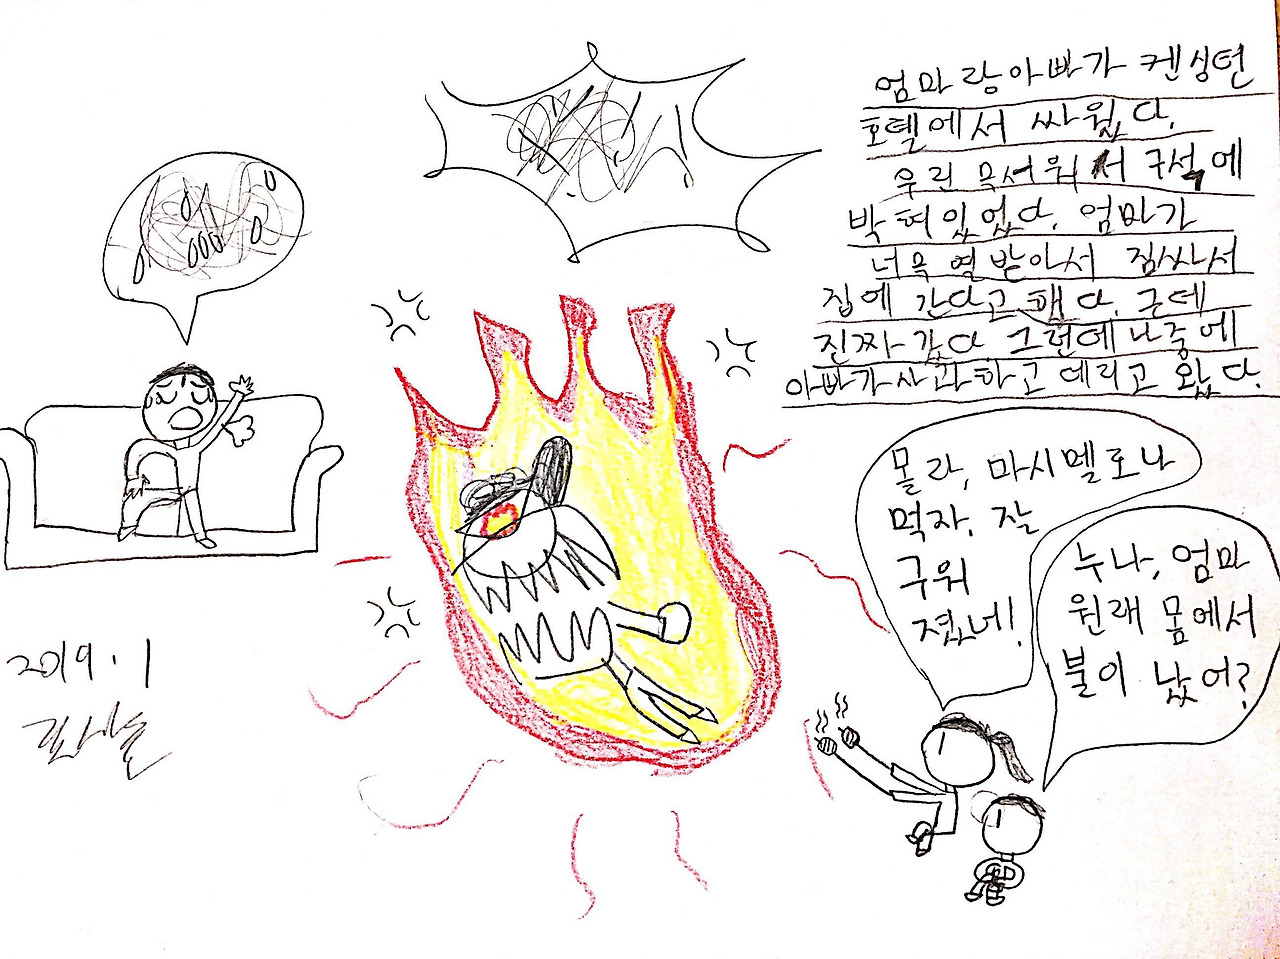 엄마랑아빠가 켄싱턴
호텔에서 싸웠다.
우린 무서워서 구석에
박혀있었다. 엄마가
너무 열받아서 짐싸서
집에 간다고 했다. 근데
진짜 갔다 그런데 나중에
아빠가사과하고 데리고 왔다.
몰라, 마시멜로나
먹자. 잘
구워
졌네!
누나, 엄마
원래 몸에서
불이 났어?
2019.1